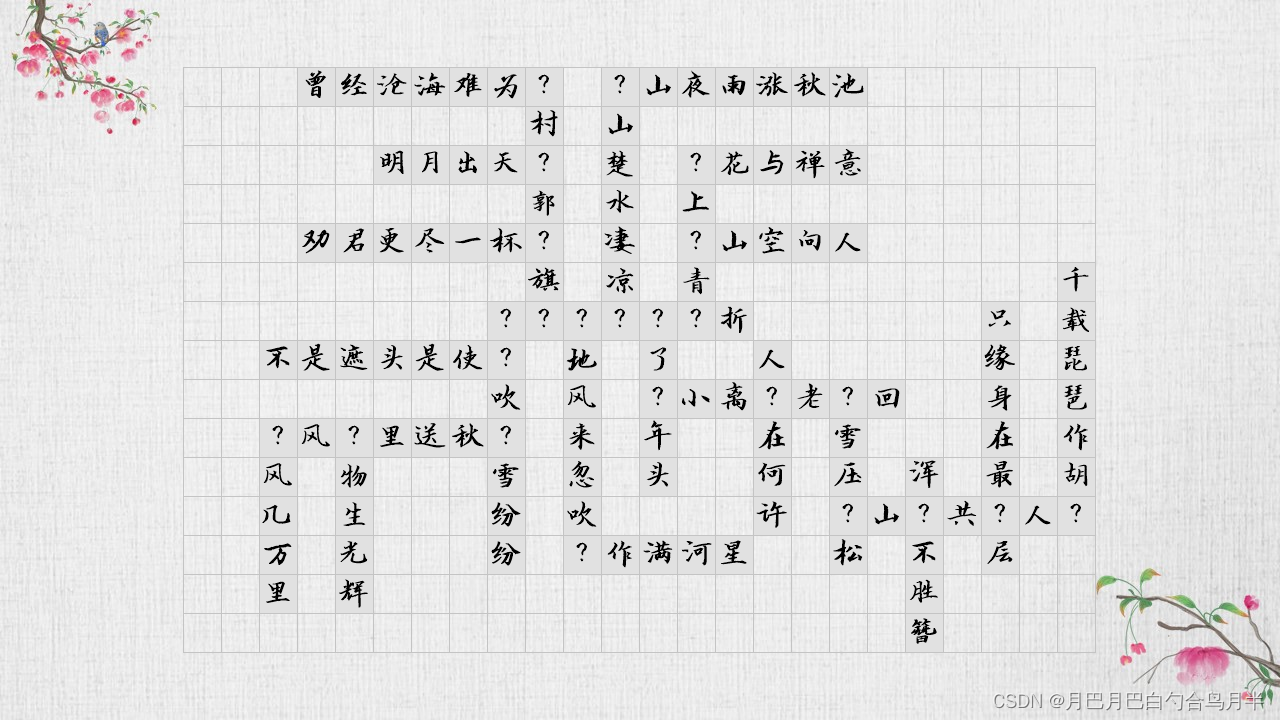 曾经沧海难为? ?山夜雨涨秋池
村 山
明月出天? 楚 ?花与禅意
郭 水 上
劝君更尽一杯? 凄 ?山空向人
旗 凉 青 千
??????折 只 载
不是遮头是使? 地 了 人 缘 琵
吹 风 ?小离?老?回 身 琶
?风?里送秋? 来 年 在 雪 在 作
风 物 雪 忽 头 何 压 浑 最 胡
几 生 纷 吹 许 ?山?共?人?
万 光 纷 ?作满河星 松 不 层
里 辉 胜
簪
CSDN @月巴月巴白勺合鸟月半